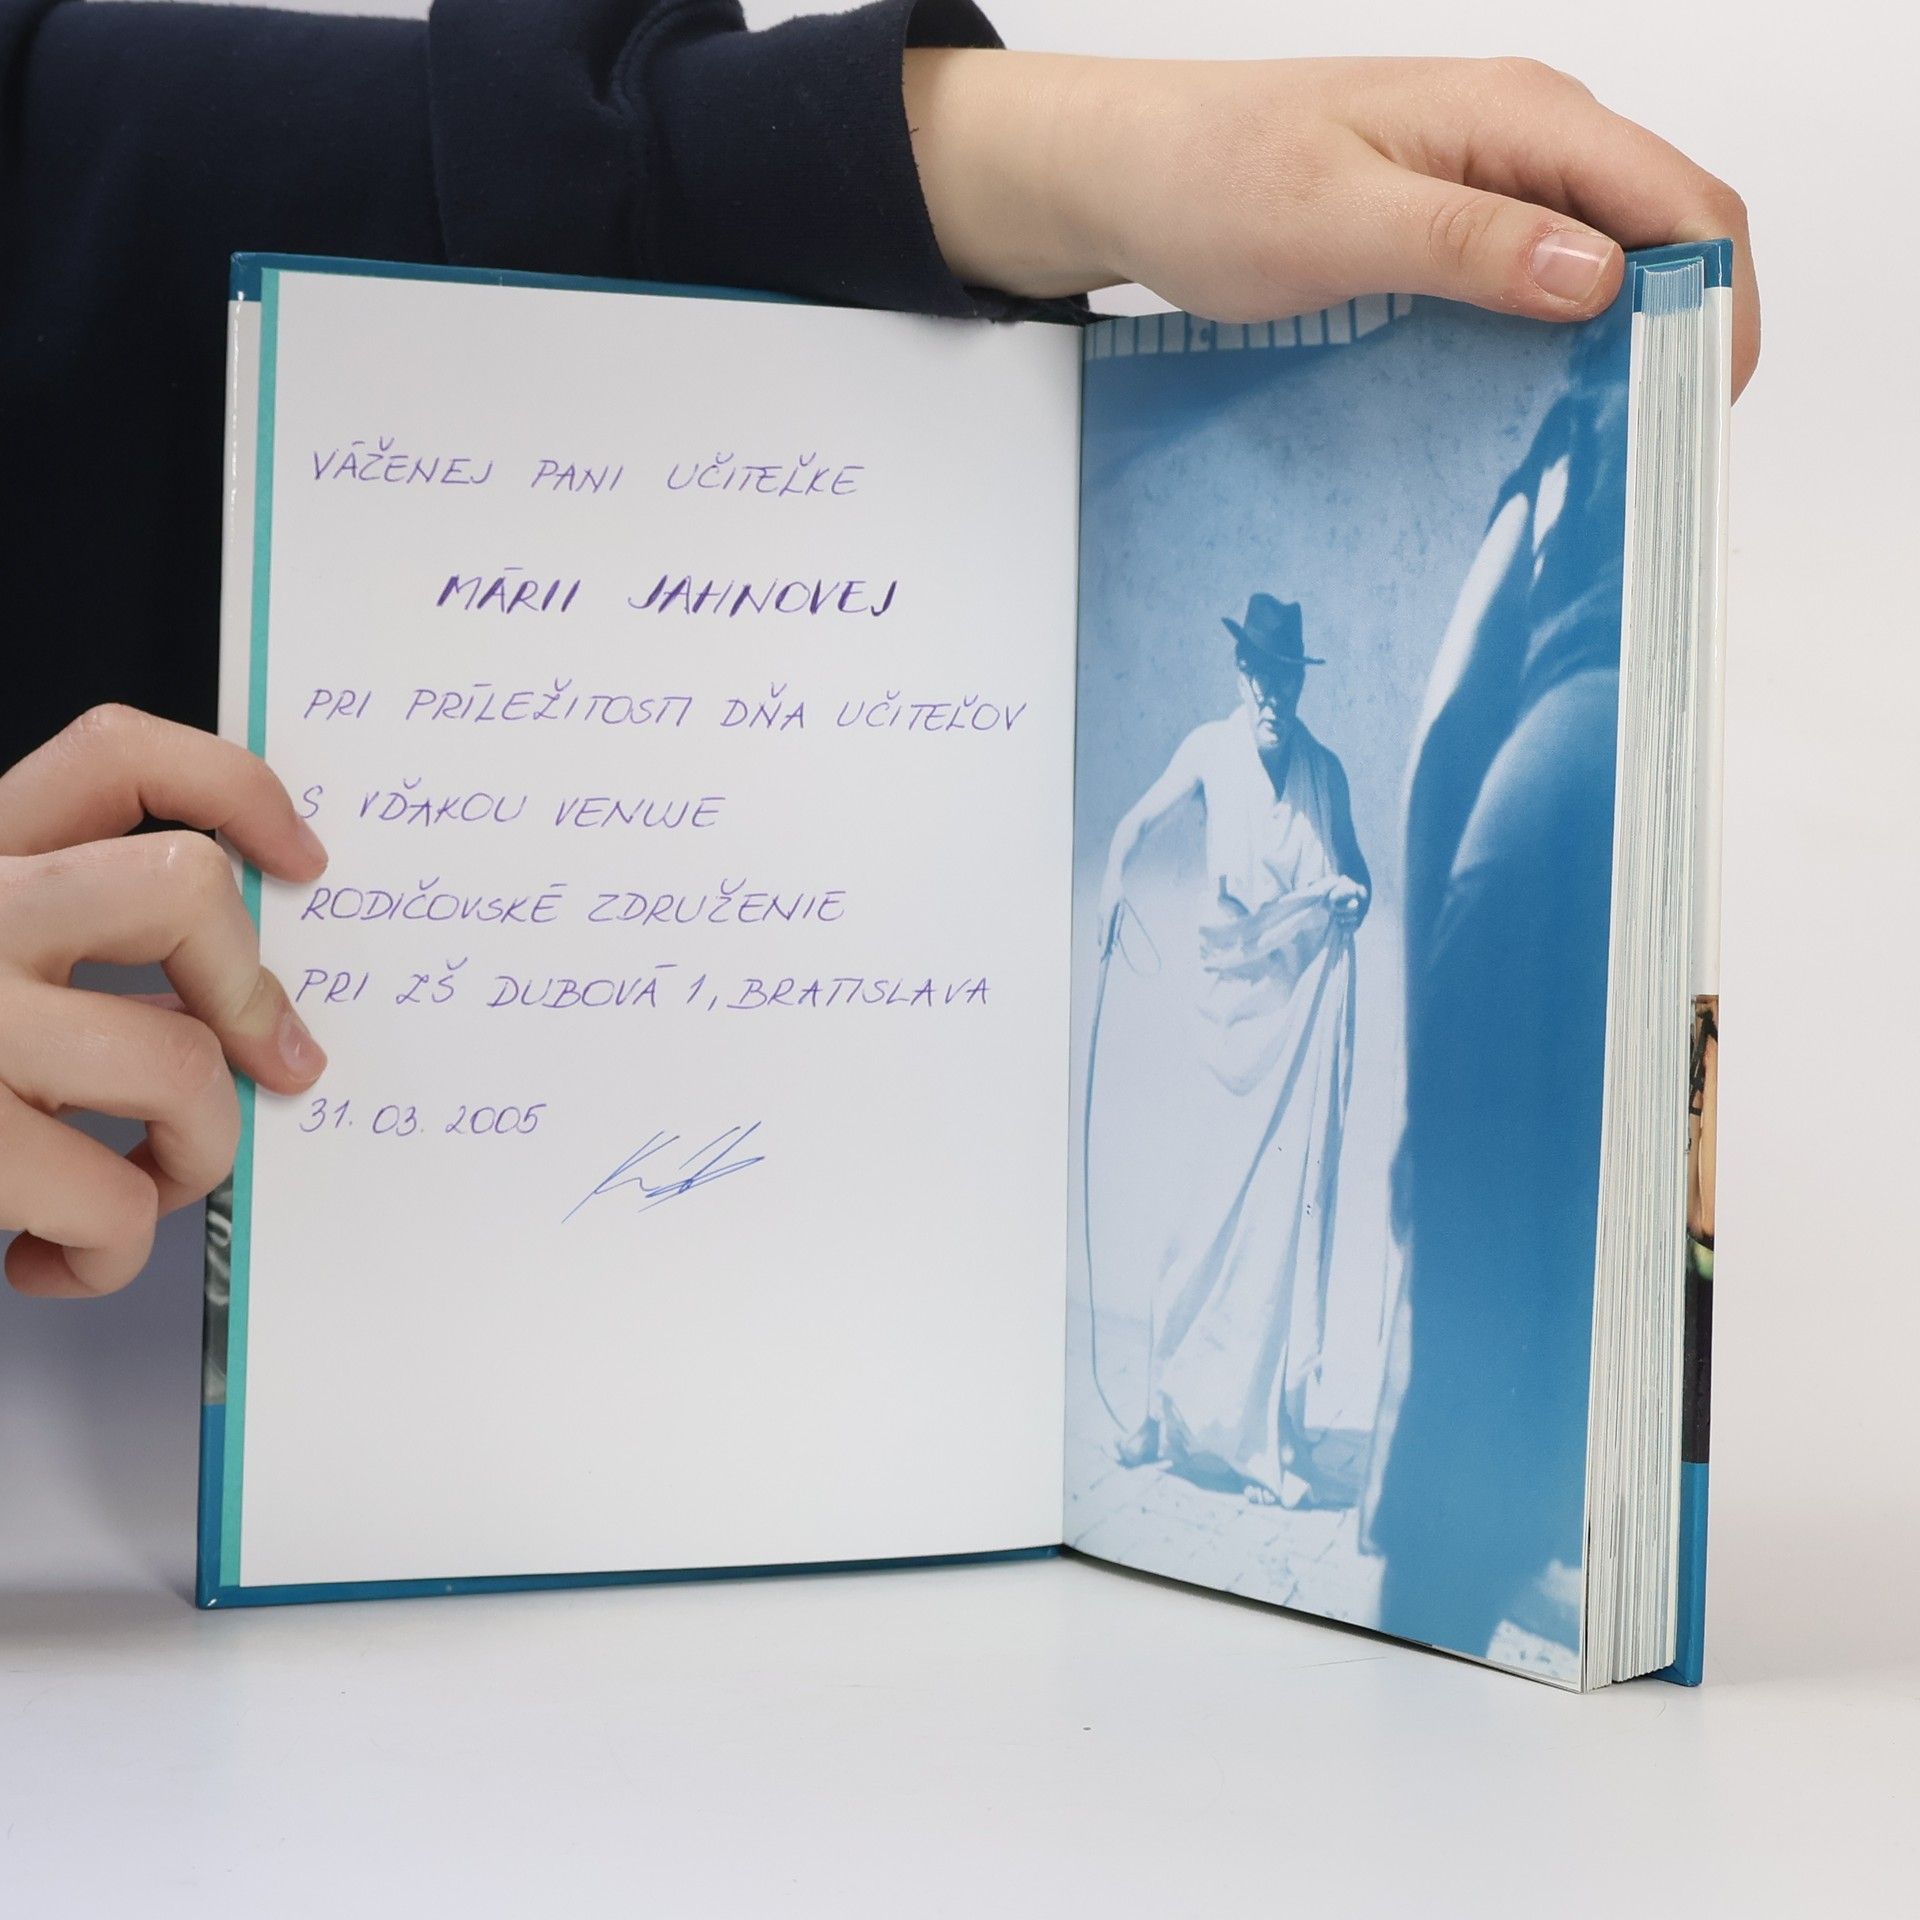 VÁŽENEJ PANI UČITEĽKE
MÁRII JAHNOVEJ
PRI PRÍLEŽITOSTI DŇA UČITEĽOV
S VĎAKOU VENUJE
RODIČOVSKÉ ZDRUŽENIE
PRI ZŠ DUBOVÁ 1, BRATISLAVA
31. 03. 2005